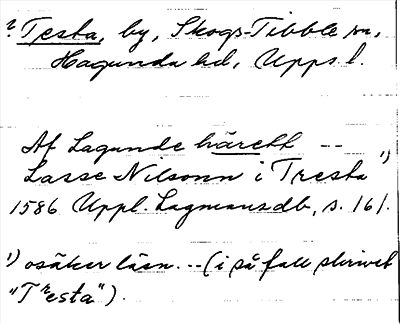 ? Tresta, by, Skogs-Tibble sn,
Hagunda hd, Upps. l.
Af Lagunde härett --
Lasse Nilsonn i Tresta 1)
1586 Uppl. Lagmansdb, s. 161.
1) osäker läsn. -- (i så fall skrivet
"Tresta").